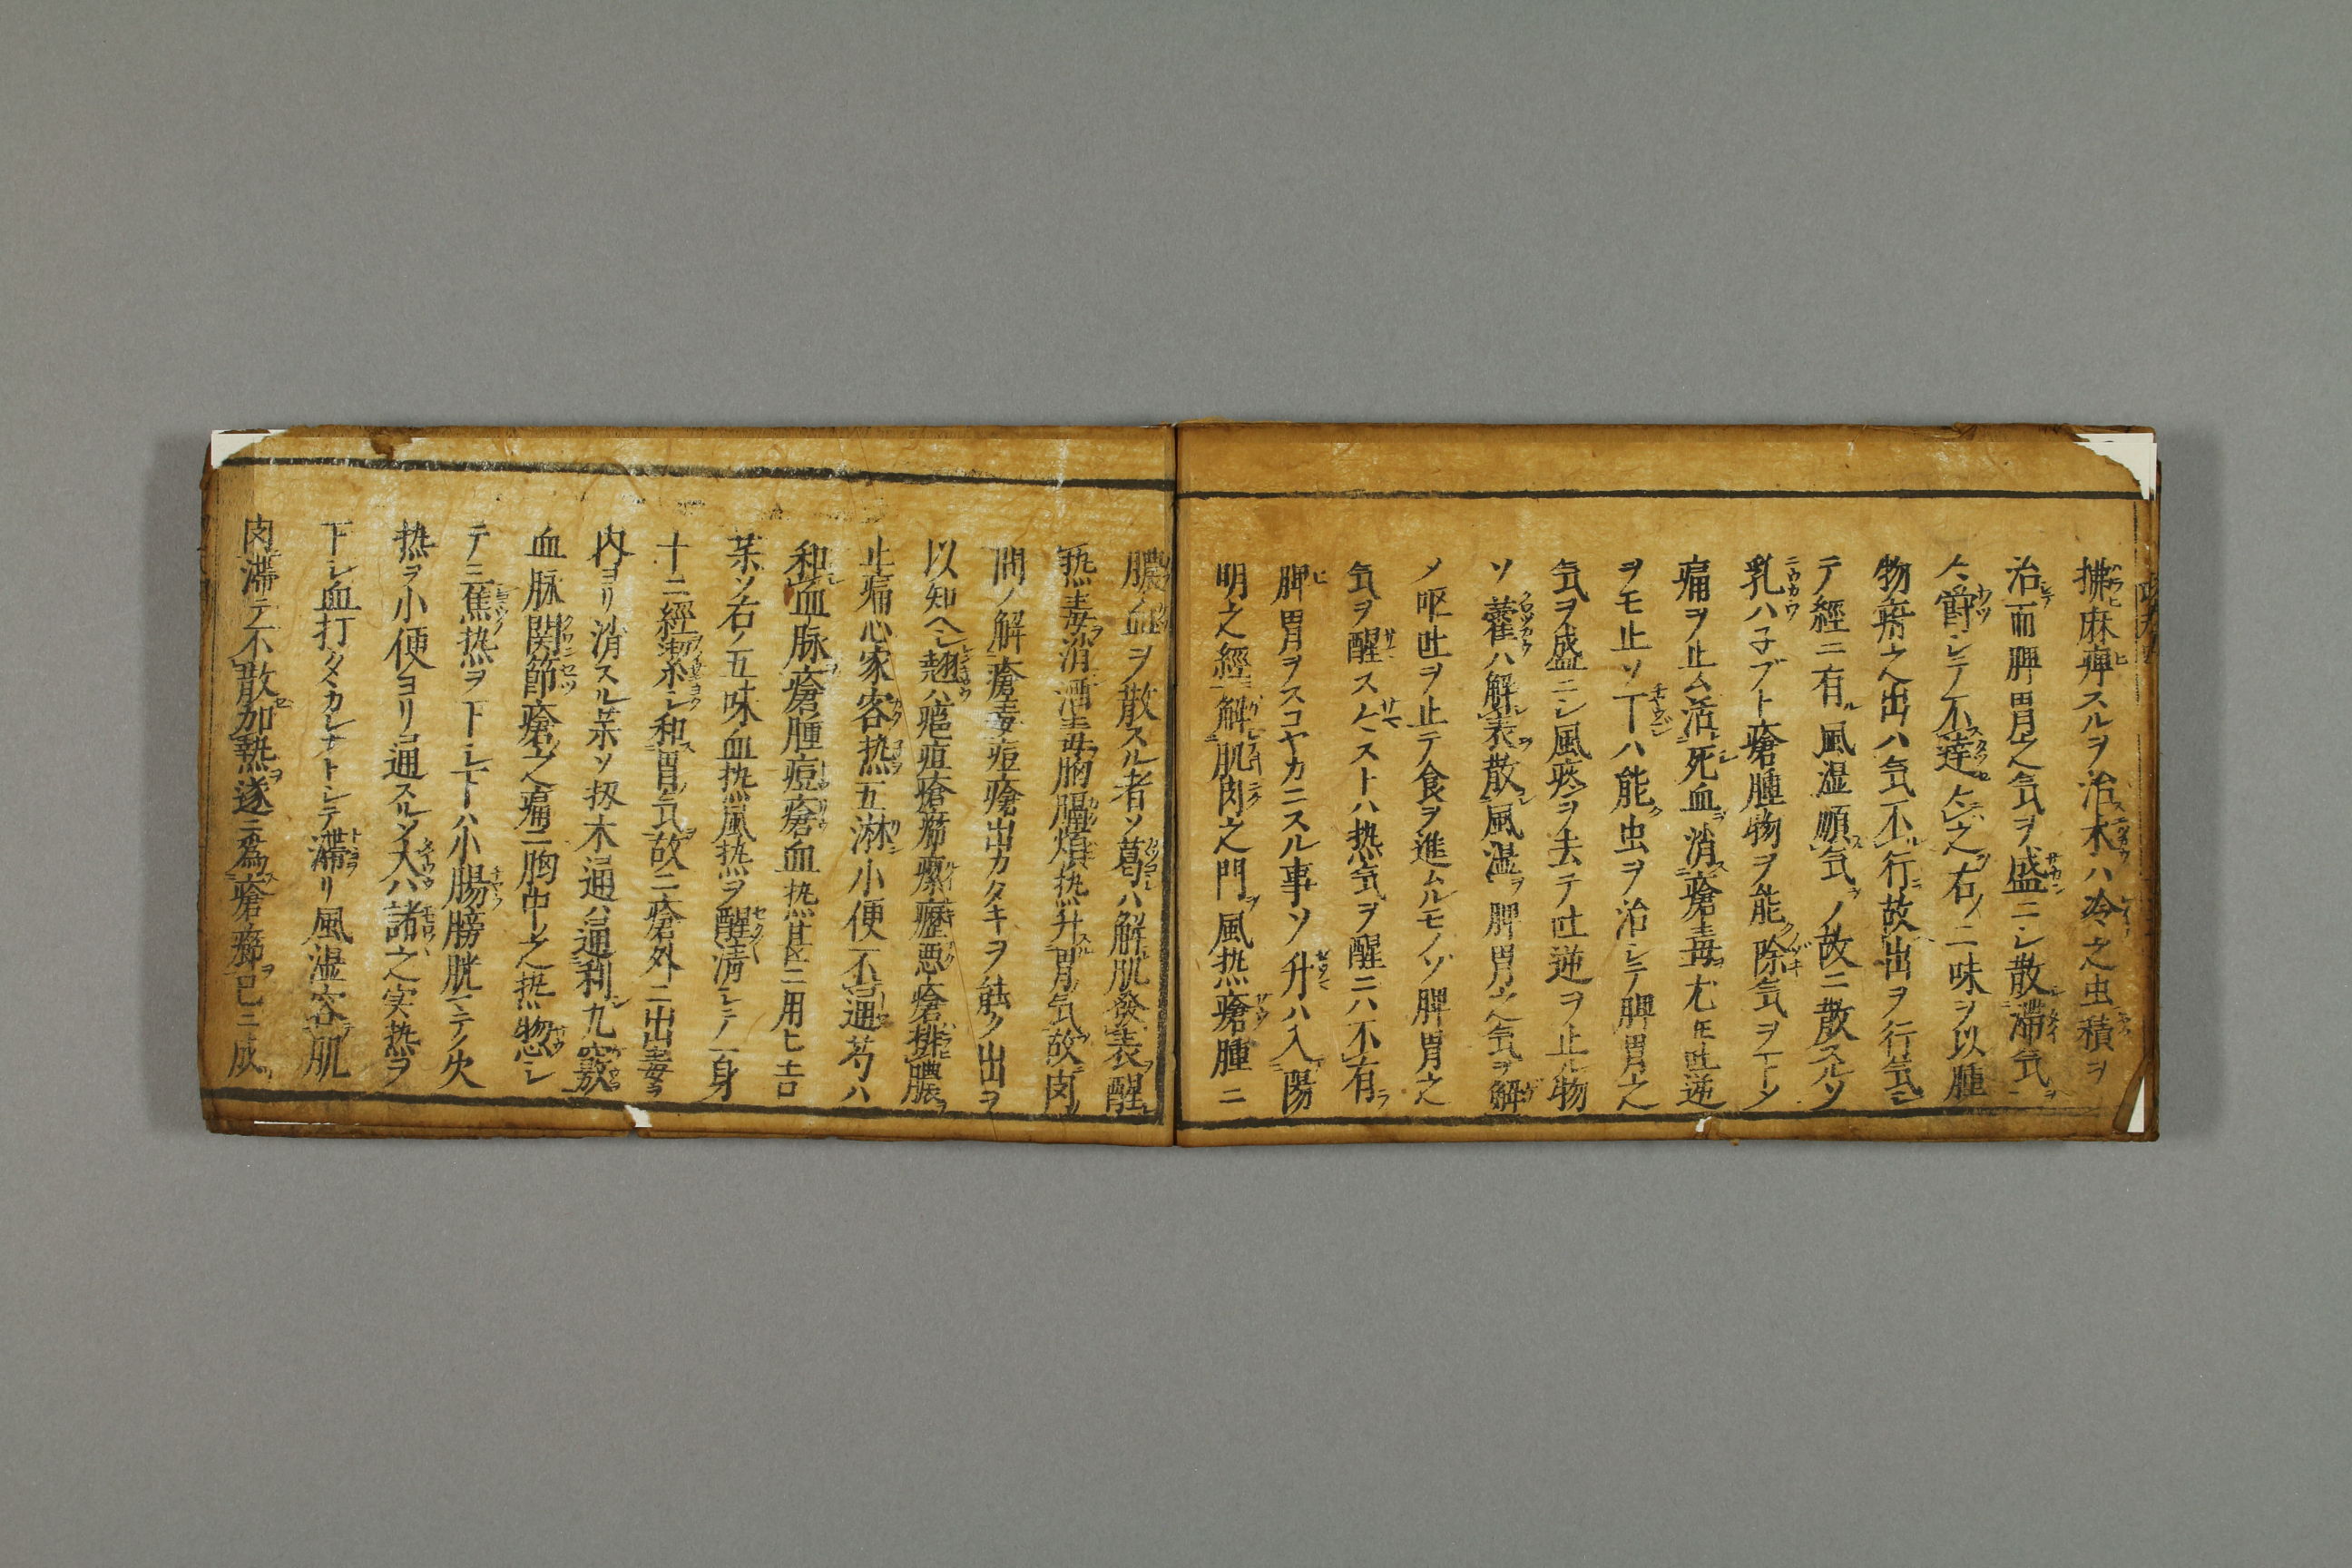 拂麻痺スルヲ治木ハ冷之虫積ヲ
治而脾胃之気ヲ盛ニシ散滞気
欝シテ不達之右ノ二味ヲ以腫
物瘡之出ハ気不行故出ヲ行気
テ經ニ有風湿順気ノ故ニ散スルソ
乳ハ子ブト瘡腫物ヲ能除気ヲ下シ
痛ヲ止ム活死血消瘡毒尤モ吐逆
ヲモ止ソ丁ハ能虫ヲ治シテ脾胃之
気ヲ盛ニシ風疼ヲ去テ吐逆ヲ止ル物
ソ藿ハ解表散風湿脾胃之気ヲ解
メ呕吐ヲ止テ食ヲ進ムルモノソ脾胃之
気ヲ醒スストハ热気ヲ醒ニ不有
脾胃ヲスコヤカニスル事ソ升ハ入陽
明之經解肌肉之門風热瘡腫ニ
膿血ヲ散スル者ソ葛ハ解肌發表醒
热毒消酒毒胸膈煩热升胃気故肉
間ノ解瘡毒痘瘡出カタキヲ能ク出ヲ
以知ヘシ翹ハ疱疽瘡癤瘰癧悪瘡排膿
止痛心家客热五淋小便不通芍ハ
和血脉瘡腫痘瘡血热甚ニ用ヒ吉
茱ソ右ノ五味血热風热ヲ醒清シテ一身
十二經漐シ和胃気故ニ瘡外ニ出毒
内ヨリ消スル茱ソ扨木通ハ通利九竅
血脉関節瘡之痛ニ胸中之热惣シ
テ三蕉热ヲ下シ下ハ小腸膀胱マテノ火
热ヲ小便ヨリ通スルソ大ハ諸之実热ヲ
下シ血打タカシナトシテ滞リ風湿客肌
肉滞テ不散加熱遂ニ為瘡癤已ニ成